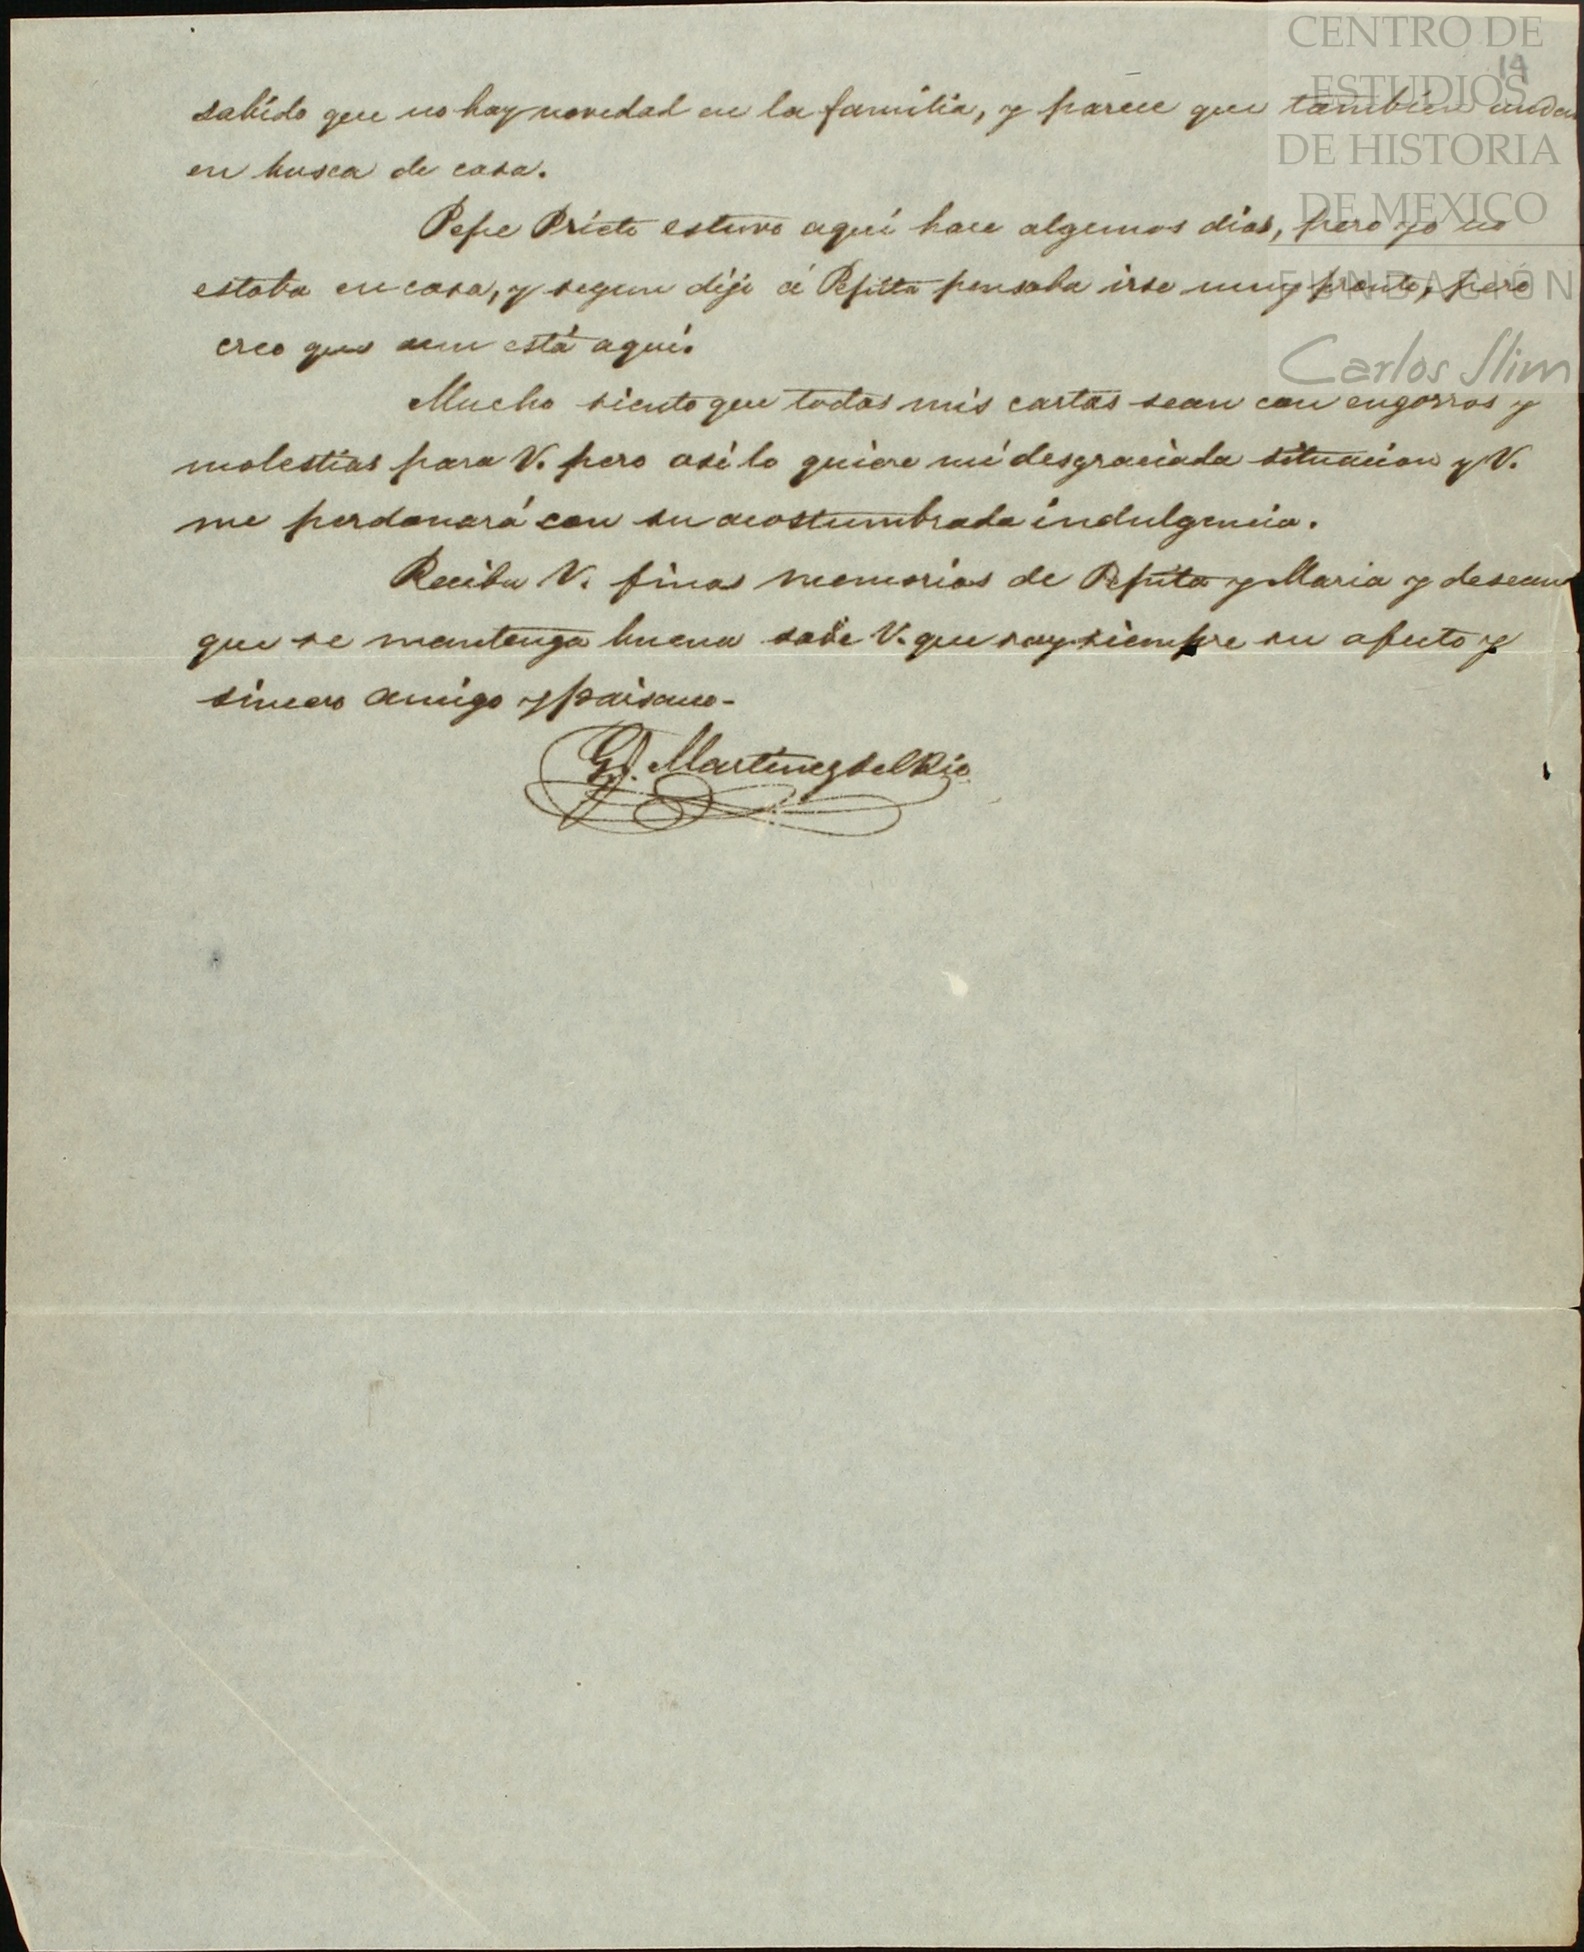 CENTRO DE
ESTUDIOS
DE HISTORIA
DE MEXICO
FUNDACIÓN
Carlos Slim
14
sabido que no hay novedad en la familia, y parece que tambien andan
en busca de casa.
Pepe Prieto estuvo aquí hace algunos dias, pero yo no
estaba en casa, y segun dijo á Pepita pensaba irse muy pronto, pero
creo que aun está aquí.
Mucho siento que todas mis cartas sean con engorros y
molestias para V. pero asi lo quiere mi desgraciada situacion y V.
me perdonará con su acostumbrada indulgencia.
Reciba V. finas memorias de Pepita y Maria y deseando
que se mantenga buena sabe V. que soy siempre su afecto y
sincero amigo y paisano-
G. Martinez del Rio